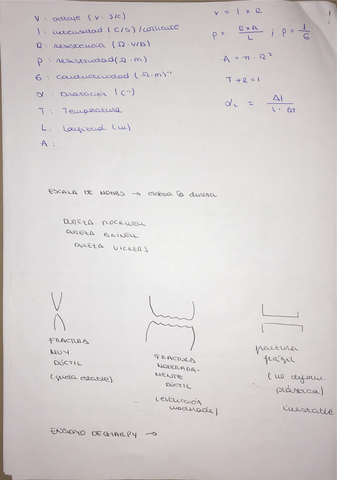 V: voltaje (V: J/C)
I: intensidad (C/S) / corriente
R: resistencia (Ω: V/A)
ρ: resistividad (Ω·m)
G: conductividad (Ω·m)⁻¹
α: Dilatación (C⁻¹)
T: Temperatura
L: longitud (m)
A:
V = I × R
ρ = R×A / L ; ρ = 1/G
A = π · R²
αL = Δl / l · ΔT
ESCALA DE MOHS → ordena la dureza
DUREZA ROCKWELL
DUREZA BRINELL
DUREZA VICKERS
FRACTURA
MUY
DÚCTIL
FRACTURA
MODERADA-
MENTE
DÚCTIL
(estricción
moderada)
fractura
frágil
(no deform.
plástica)
inestable
ENSAYO DE CHARPY →